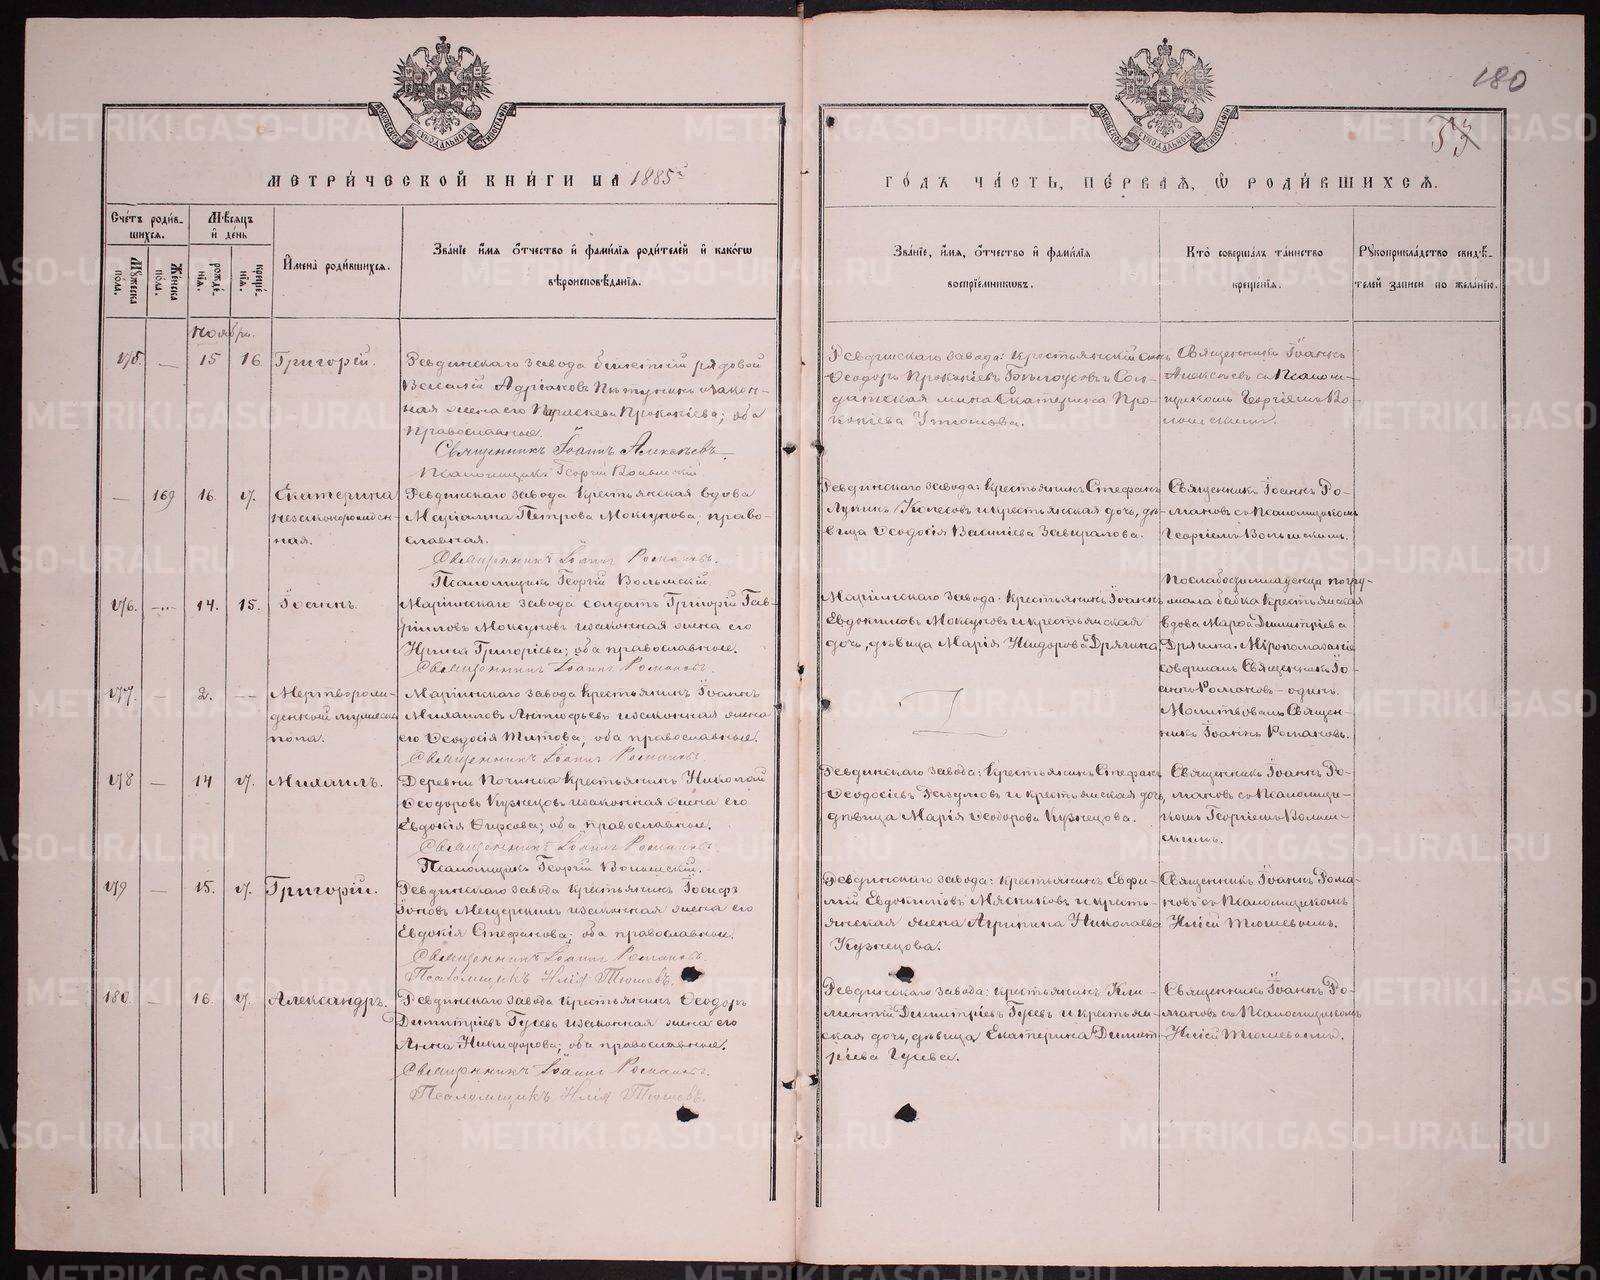 180
53
МОСКОВСКОЙ СѴНОДАЛЬНОЙ ТИПОГРАФІИ
МОСКОВСКОЙ СѴНОДАЛЬНОЙ ТИПОГРАФІИ
МЕТРИ́ЧЕСКОЙ КНИ́ГИ НА 1885й
ГО́ДЪ ЧА́СТЬ, ПЕ́РВАѦ, Ѡ҆ РОДИ́ВШИХСѦ.
Сче́тъ роди́в-
шихсѧ.
Мꙋжеска по́ла.
Женска по́ла.
Мѣ́сѧцъ
и҆ де́нь
рожде́-
нїѧ.
креще́-
нїѧ.
И҆мена̀ роди́вшихсѧ.
Зва́нїе и҆́мѧ ѻ҆́тчество и҆ фами́лїѧ роди́телей и҆ како́гѡ
вѣроисповѣ́данїѧ.
Зва́нїе, и҆́мѧ, ѻ҆́тчество и҆ фами́лїѧ
воспрїе́мникѡвъ.
Кто̀ соверша́лъ та́инство
креще́нїѧ.
Рꙋкоприкла́дство свидѣ́-
телей записи по жела́нїю.
Ноября.
175. — 15 16 Григорій.
Ревдинскаго завода билетный рядовой
Василій Адріановъ Пѣтунинъ и закон-
ная жена его Параскева Прокопіева; оба
православные.
Священникъ Іоаннъ Алексѣевъ
Псаломщикъ Георгій Волынскій
Ревдинскаго завода: крестьянскій сынъ
Ѳеодоръ Прокопіевъ Бѣлоусовъ и Сол-
датская жена Екатерина Про-
копіева Утюмова.
Священникъ Іоаннъ
Алексѣевъ съ Псалом-
щикомъ Георгіемъ Во-
лынскимъ.
— 169 16. 17. Екатерина
незаконорожден-
ная.
Ревдинскаго завода крестьянская вдова
Маріамна Петрова Моксунова, право-
славная.
Священникъ Іоаннъ Романовъ.
Псаломщикъ Георгій Волынскій
Ревдинскаго завода: крестьянинъ Стефанъ
Лупинъ Колесовъ и крестьянская дочь, дѣ-
вица Ѳеодосія Василіева Завиралова.
Священникъ Іоаннъ Ро-
мановъ съ Псаломщикомъ
Георгіемъ Волынскимъ.
176. — 14. 15. Іоаннъ.
Маріинскаго завода солдатъ Григорій Гав-
риловъ Моксуновъ и законная жена его
Ирина Григоріева; оба православные.
Священникъ Іоаннъ Романовъ.
Маріинскаго завода: крестьянинъ Іоаннъ
Евдокимовъ Моксуновъ и крестьянская
дочь, дѣвица Марія Исидорова Дрягина
По слабости младенца погру-
жала бабка крестьянская
вдова Марѳа Димитріева
Дрягина. Мѵропомазаніе
совершалъ Священникъ Іо-
аннъ Романовъ — одинъ.
177. — 2. — Мертворож-
денный мужеска
пола.
Маріинскаго завода крестьянинъ Іоаннъ
Михаиловъ Антифьевъ и законная жена
его Ѳеодосія Титова, оба православные.
Священникъ Іоаннъ Романовъ.
Молитвовалъ Священ-
никъ Іоаннъ Романовъ.
178 — 14 17. Михаилъ.
Деревни Починка крестьянинъ Николай
Ѳеодоровъ Кузнецовъ и законная жена его
Евдокія Фирсова; оба православные.
Священникъ Іоаннъ Романовъ
Псаломщикъ Георгій Волынскій.
Ревдинскаго завода: крестьянинъ Стефанъ
Ѳеодосіевъ Разумовъ и крестьянская дочь,
дѣвица Марія Ѳеодорова Кузнецова.
Священникъ Іоаннъ Ро-
мановъ съ Псаломщи-
комъ Георгіемъ Волын-
скимъ.
179 — 15. 17. Григорій.
Ревдинскаго завода крестьянинъ Іосифъ
Іоновъ Мещерягинъ и законная жена его
Евдокія Стефанова; оба православные.
Священникъ Іоаннъ Романовъ.
Псаломщикъ Илія Тюшевъ.
Ревдинскаго завода: крестьянинъ Евфи-
мій Евдокимовъ Мясниковъ и кресть-
янская жена Агрипина Николаева
Кузнецова.
Священникъ Іоаннъ Рома-
новъ съ Псаломщикомъ
Иліей Тюшевымъ.
180. — 16. 17. Александръ.
Ревдинскаго завода крестьянинъ Ѳеодоръ
Димитріевъ Гусевъ и законная жена его
Анна Никифорова; оба православные.
Священникъ Іоаннъ Романовъ.
Псаломщикъ Илія Тюшевъ.
Ревдинскаго завода: крестьянинъ Кли-
ментій Димитріевъ Гусевъ и крестьян-
ская дочь, дѣвица Екатерина Димит-
ріева Гусева.
Священникъ Іоаннъ Ро-
мановъ съ Псаломщикомъ
Иліей Тюшевымъ.
METRIKI.GASO-URAL.RU